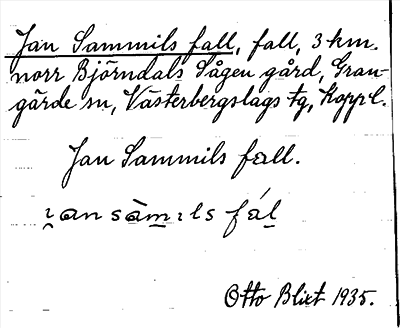 Jan Sammils fall, fall, 3 km.
norr Björndals Sågen gård, Gran-
gärde sn, Västerbergslags tg, Koppl.
Jan Sammils fall.
ı̯an sàm̲ıls fál̲
Otto Blixt 1935.